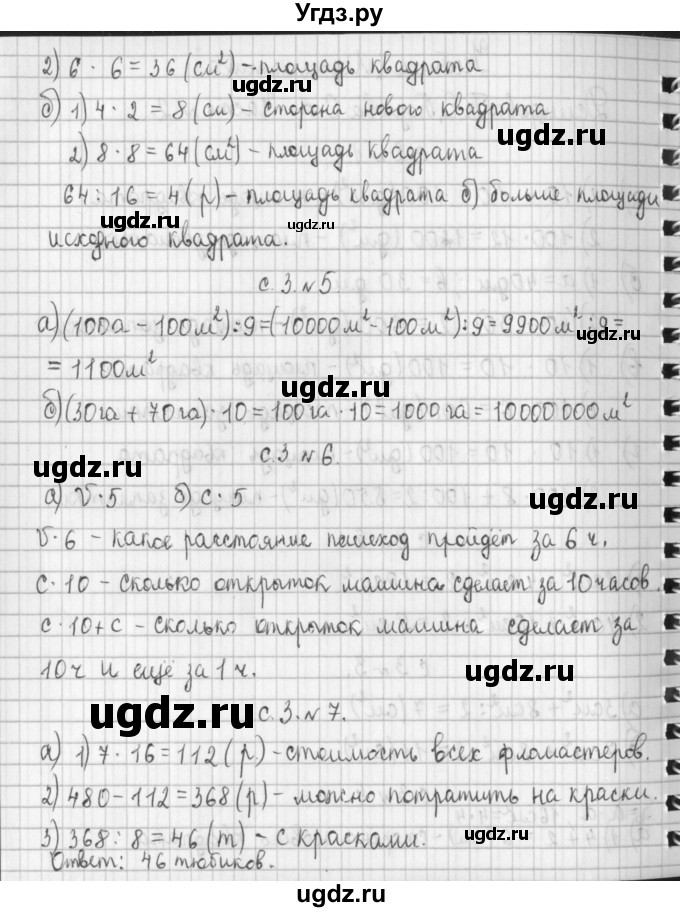 Угдз.ру
2) 6 · 6 = 36 (см²) - площадь квадрата
ugdz.ru
б) 1) 4 · 2 = 8 (см) - сторона нового квадрата
ugdz.ru
2) 8 · 8 = 64 (см²) - площадь квадрата
64 : 16 = 4 (р) - площадь квадрата б) больше площади
ugdz.ru ugdz.ru
исходного квадрата.
с. 3. №5
а) (100а - 100м²) : 9 = (10000м² - 100м²) : 9 = 9900м² : 9 =
= 1100м²
ugdz.ru
б) (30га + 70га) · 10 = 100га · 10 = 1000га = 10000000м²
с. 3 №6.
ugdz.ru
а) v · 5 б) с · 5
ugdz.ru
v · 6 - какое расстояние пешеход пройдёт за 6 ч.
с · 10 - сколько открыток машина сделает за 10 часов.
с · 10 + с - сколько открыток машина сделает за
10 ч и ещё за 1 ч.
ugdz.ru
ugdz.ru
с. 3. №7.
а) 1) 7 · 16 = 112 (р) - стоимость всех фломастеров.
2) 480 - 112 = 368 (р) - можно потратить на краски.
3) 368 : 8 = 46 (т) - с красками.
Ответ: 46 тюбиков.
ugdz.ru
ugdz.ru